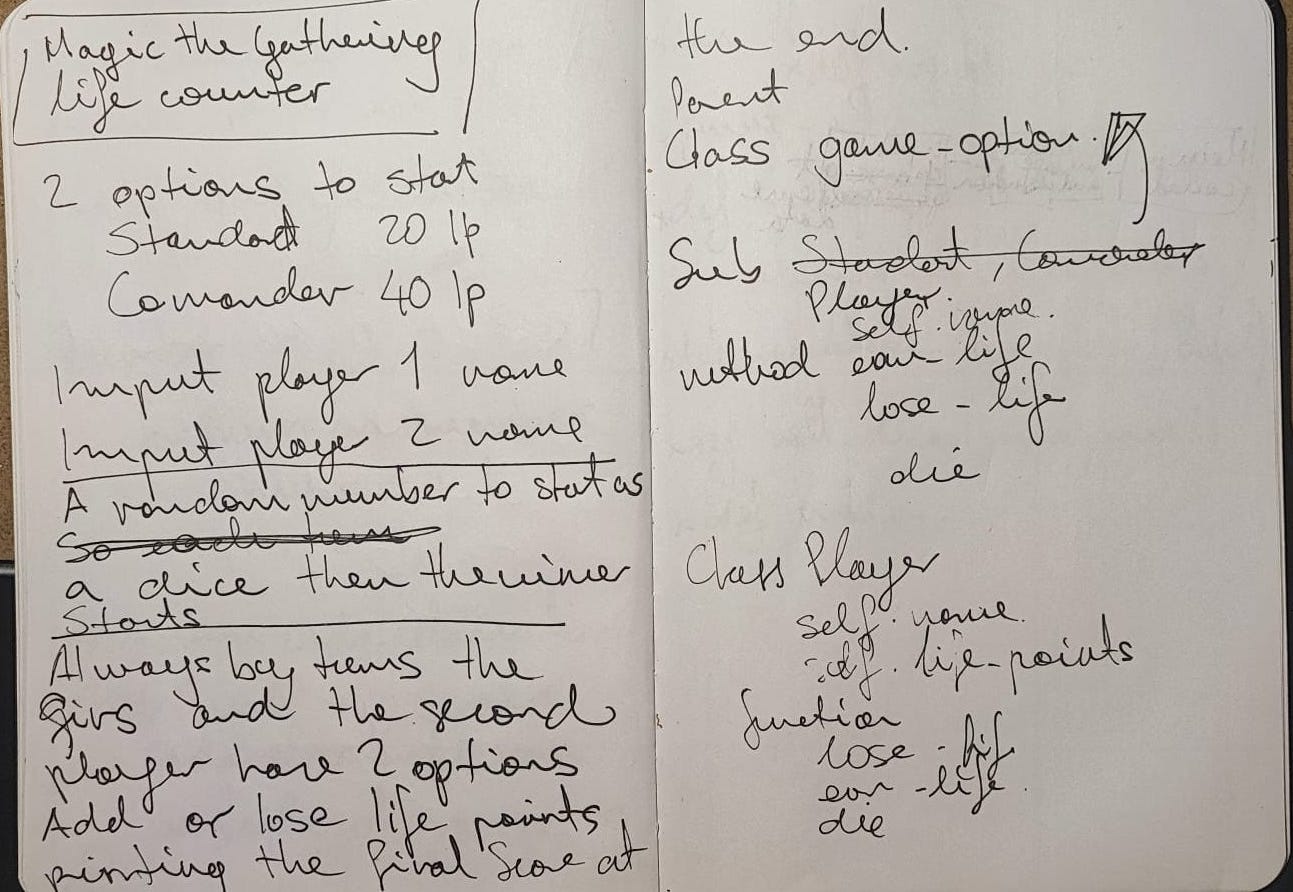 Magic the Gathering
life counter
2 options to stat
Standart 20 lp
Comander 40 lp
Imput player 1 name
Imput player 2 name
A random number to stat as
So each turn
a dice then the winer
Starts
Always by turns the
firs and the second
player have 2 options
Add or lose life points
printing the final score at
the end.
Parent
Class game-option.
Sub Standart, Comander
Player.
self.
method earn-life
lose-life
die
Class Player
self.name.
self.life-points
function
lose-lif
earn-life.
die